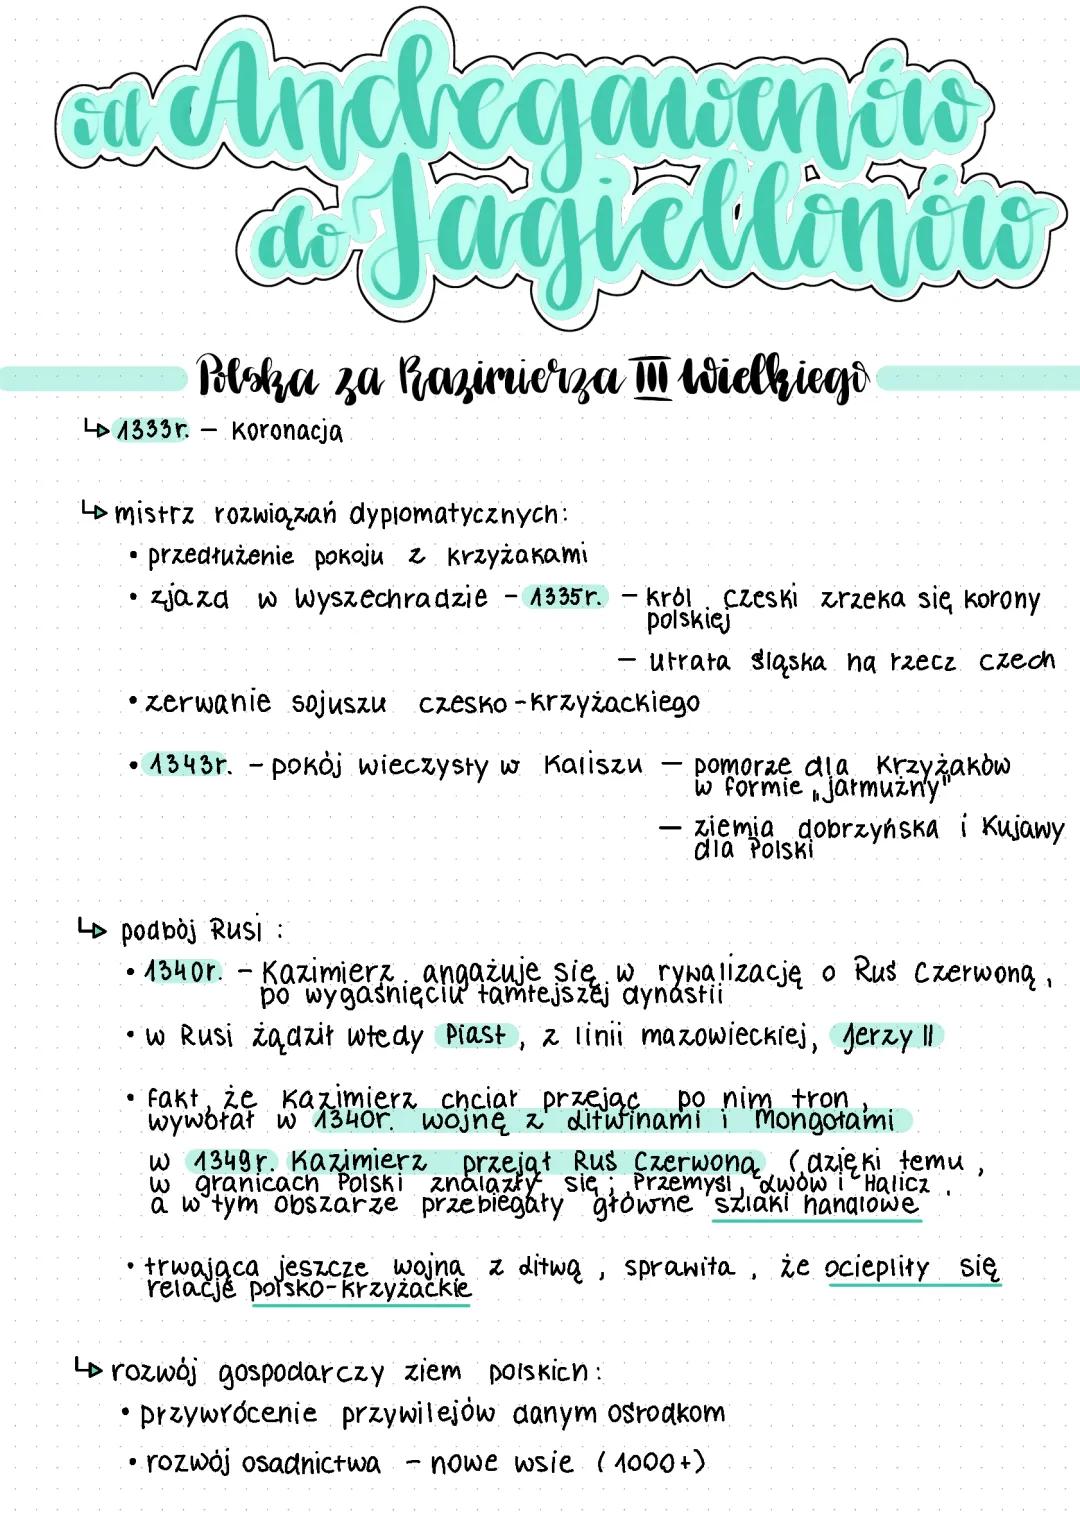 od Andegawenów
do Jagiellonów
Polska za Kazimierza III Wielkiego
↳ 1333r. – koronacja
↳ mistrz rozwiązań dyplomatycznych:
• przedłużenie pokoju z krzyżakami
• zjazd w Wyszechradzie – 1335r. – król czeski zrzeka się korony
polskiej
– utrata śląska na rzecz czech
• zerwanie sojuszu czesko-krzyżackiego
• 1343r. – pokój wieczysty w Kaliszu – pomorze dla Krzyżaków
w formie „jałmużny"
– ziemia dobrzyńska i Kujawy
dla Polski
↳ podbój Rusi :
• 1340r. – Kazimierz angażuje się w rywalizację o Ruś Czerwoną,
po wygaśnięciu tamtejszej dynastii
• w Rusi żądził wtedy Piast, z linii mazowieckiej, Jerzy II
• fakt, że Kazimierz chciał przejąć po nim tron,
wywołał w 1340r. wojnę z Litwinami i Mongołami
w 1349r. Kazimierz przejął Ruś Czerwoną (dzięki temu,
w granicach Polski znalazły się; Przemyśl, Lwów i Halicz.
a w tym obszarze przebiegały główne szlaki handlowe
• trwająca jeszcze wojna z Litwą, sprawiła, że ociepliły się
relacje polsko-krzyżackie
↳ rozwój gospodarczy ziem polskich:
• przywrócenie przywilejów danym ośrodkom
• rozwój osadnictwa – nowe wsie (1000+)